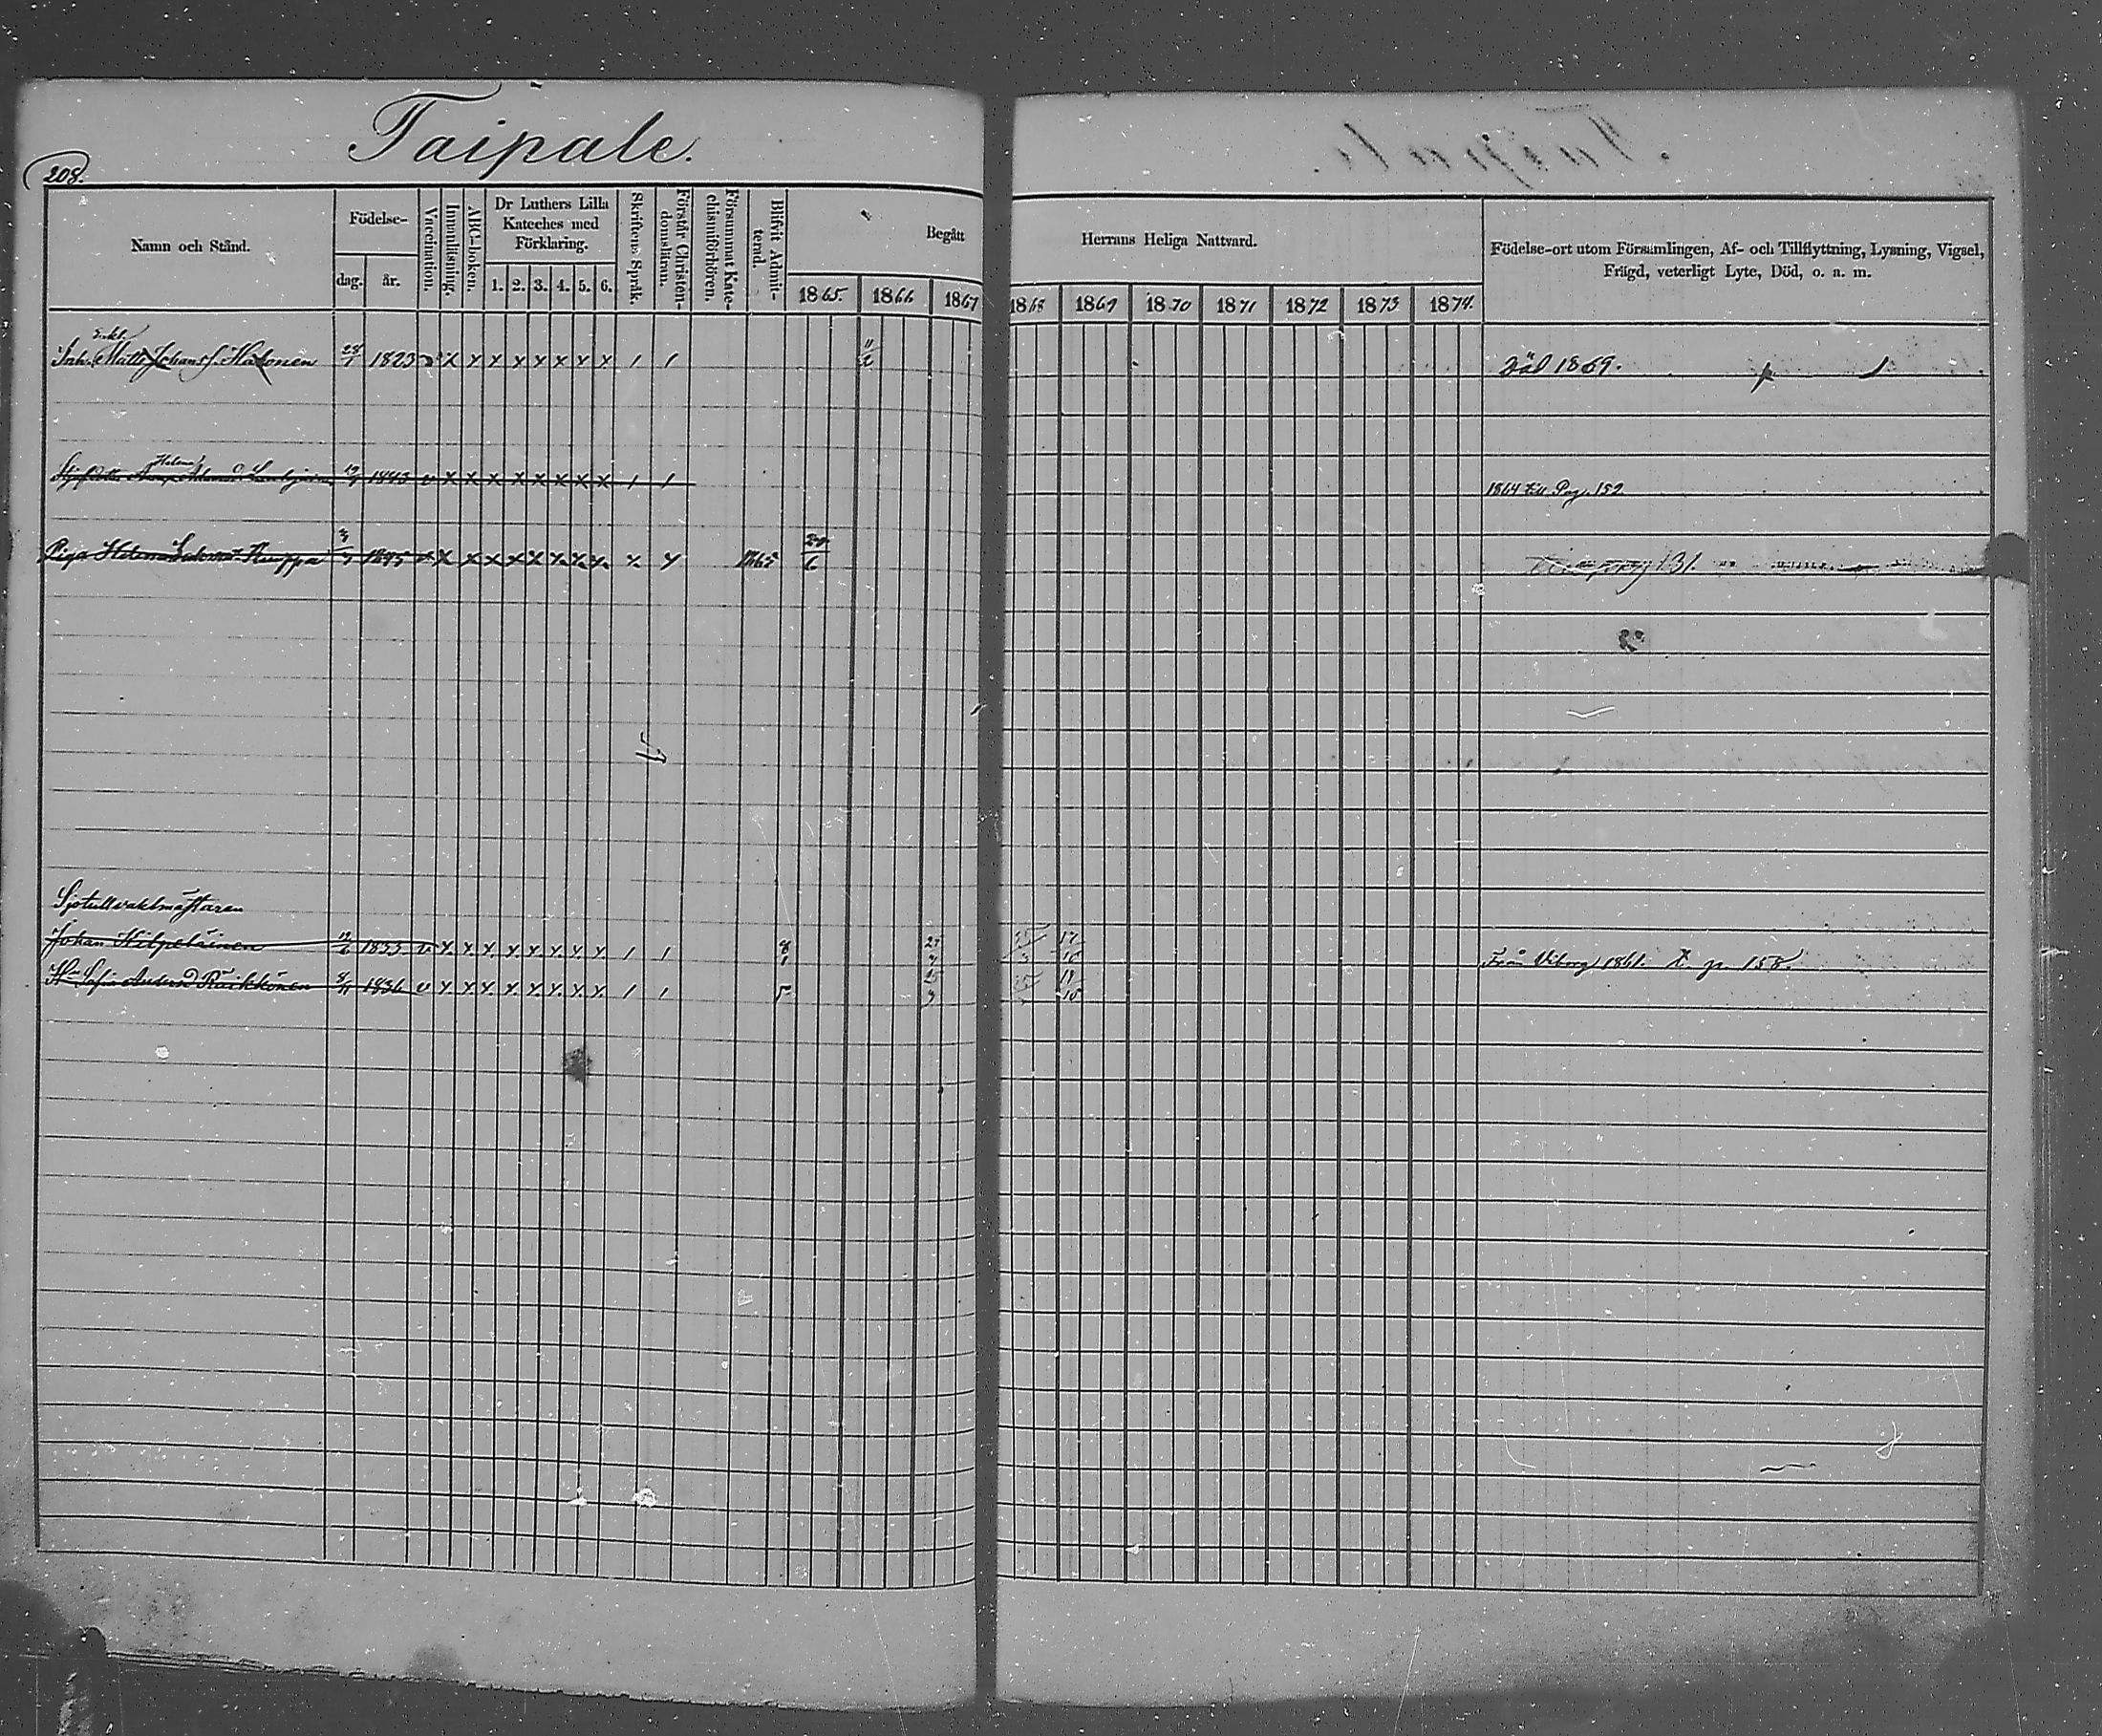 Taipale.
208.
Namn och Stånd.
Födelse-
dag.
år.
Vaccination.
Innanläsning.
ABC-boken.
Dr Luthers Lilla
Kateches med
Förklaring.
1. 2. 3. 4. 5. 6.
Skriftens Språk.
Förstår Christen-
domsläran.
Försummat Kate-
chismiförhören.
Blifvit Admit-
terad.
Begått
Herrans Heliga Nattvard.
1865. 1866 1867 1868 1869 1870 1871 1872 1873 1874.
Födelse-ort utom Församlingen, Af- och Tillflyttning, Lysning, Vigsel,
Frägd, veterligt Lyte, Död, o. a. m.
Enkl.
Inh. Matts Johans s. Hakonen 28/1 1823 v x x x x x x x x / / 11/2 Död 1869.
Helena
1843 v x x x x x x x x / / 1864 till Pag. 152
Piga Helena 1845 v x x x x x x x x x x 1865 20/6 131.
Sjötullvaktmästaren
Johan Kilpeläinen 12/6 1833 v x x x x x x x x / / 8/1 17/10 Från Viborg 1861. T. p. 158.
Hu Sofia Andersd Räikkönen 1836 v x x x x x x x x / / 5